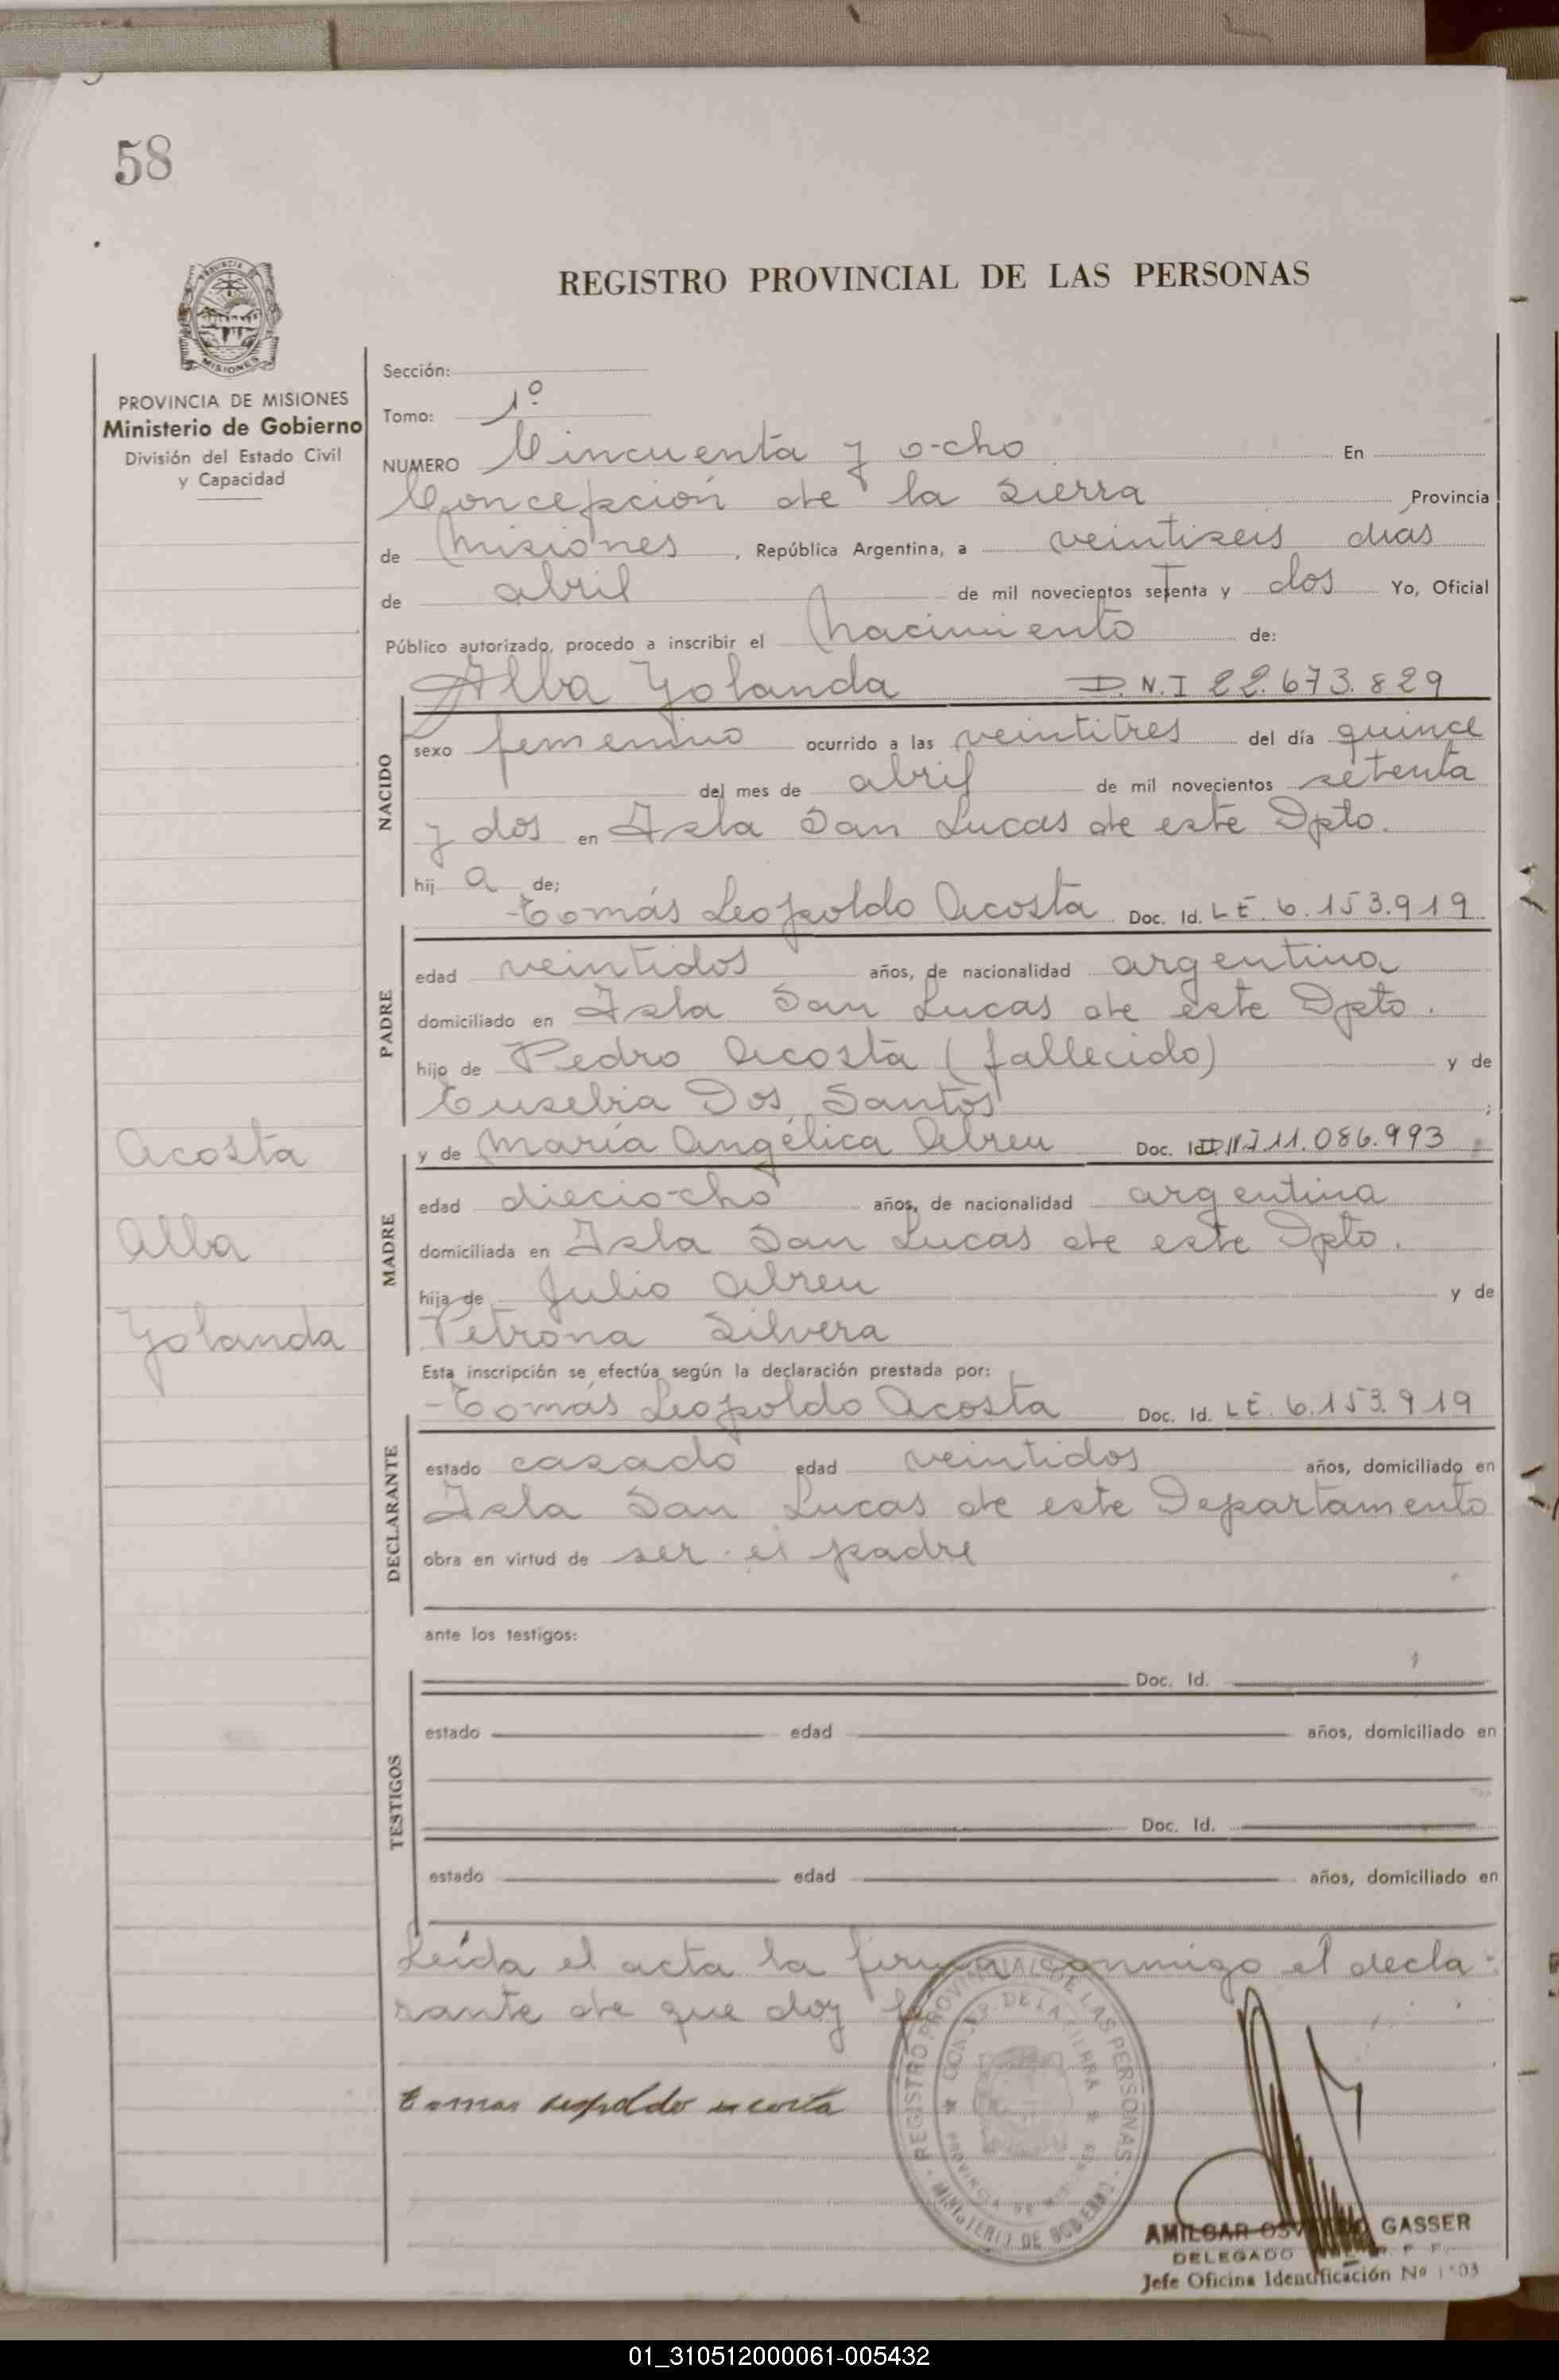 58
REGISTRO PROVINCIAL DE LAS PERSONAS
PROVINCIA DE MISIONES
Ministerio de Gobierno
División del Estado Civil
y Capacidad
Sección:
Tomo: 1º
NUMERO Cincuenta y ocho En
Concepción de la Sierra Provincia
de Misiones, República Argentina, a veintiseis dias
de abril de mil novecientos setenta y dos Yo, Oficial
Público autorizado, procedo a inscribir el Nacimiento de:
Alba Yolanda D.N.I 22.673.829
NACIDO
sexo femenino ocurrido a las veintitres del día quince
del mes de abril de mil novecientos setenta
y dos en Isla San Lucas de este Dpto.
hij a de;
Tomás Leopoldo Acosta Doc. Id. L E. 6.153.919
PADRE
edad veintidos años, de nacionalidad argentina
domiciliado en Isla San Lucas de este Dpto.
hijo de Pedro Acosta (fallecido) y de
Eusebia Dos Santos ;
y de María Angélica Abreu Doc. Id. DNI 11.086.993
MADRE
edad dieciocho años, de nacionalidad argentina
domiciliada en Isla San Lucas de este Dpto.
hija de Julio Abreu y de
Petrona Silvera
Acosta
Alba
Yolanda
Esta inscripción se efectúa según la declaración prestada por:
Tomás Leopoldo Acosta Doc. Id. L E. 6.153.919
DECLARANTE
estado casado edad veintidos años, domiciliado en
Isla San Lucas de este Departamento
obra en virtud de ser el padre
ante los testigos:
TESTIGOS
Doc. Id.
estado edad años, domiciliado en
Doc. Id.
estado edad años, domiciliado en
Leida el acta la firma conmigo el decla-
rante de que doy fé
tomas leopoldo acosta
REGISTRO PROVINCIAL DE LAS PERSONAS
MINISTERIO DE GOBIERNO
CONCEP. DE LA SIERRA
PROVINCIA DE MISIONES
AMILCAR GASSER
DELEGADO
Jefe Oficina Identificación Nº
01_310512000061-005432